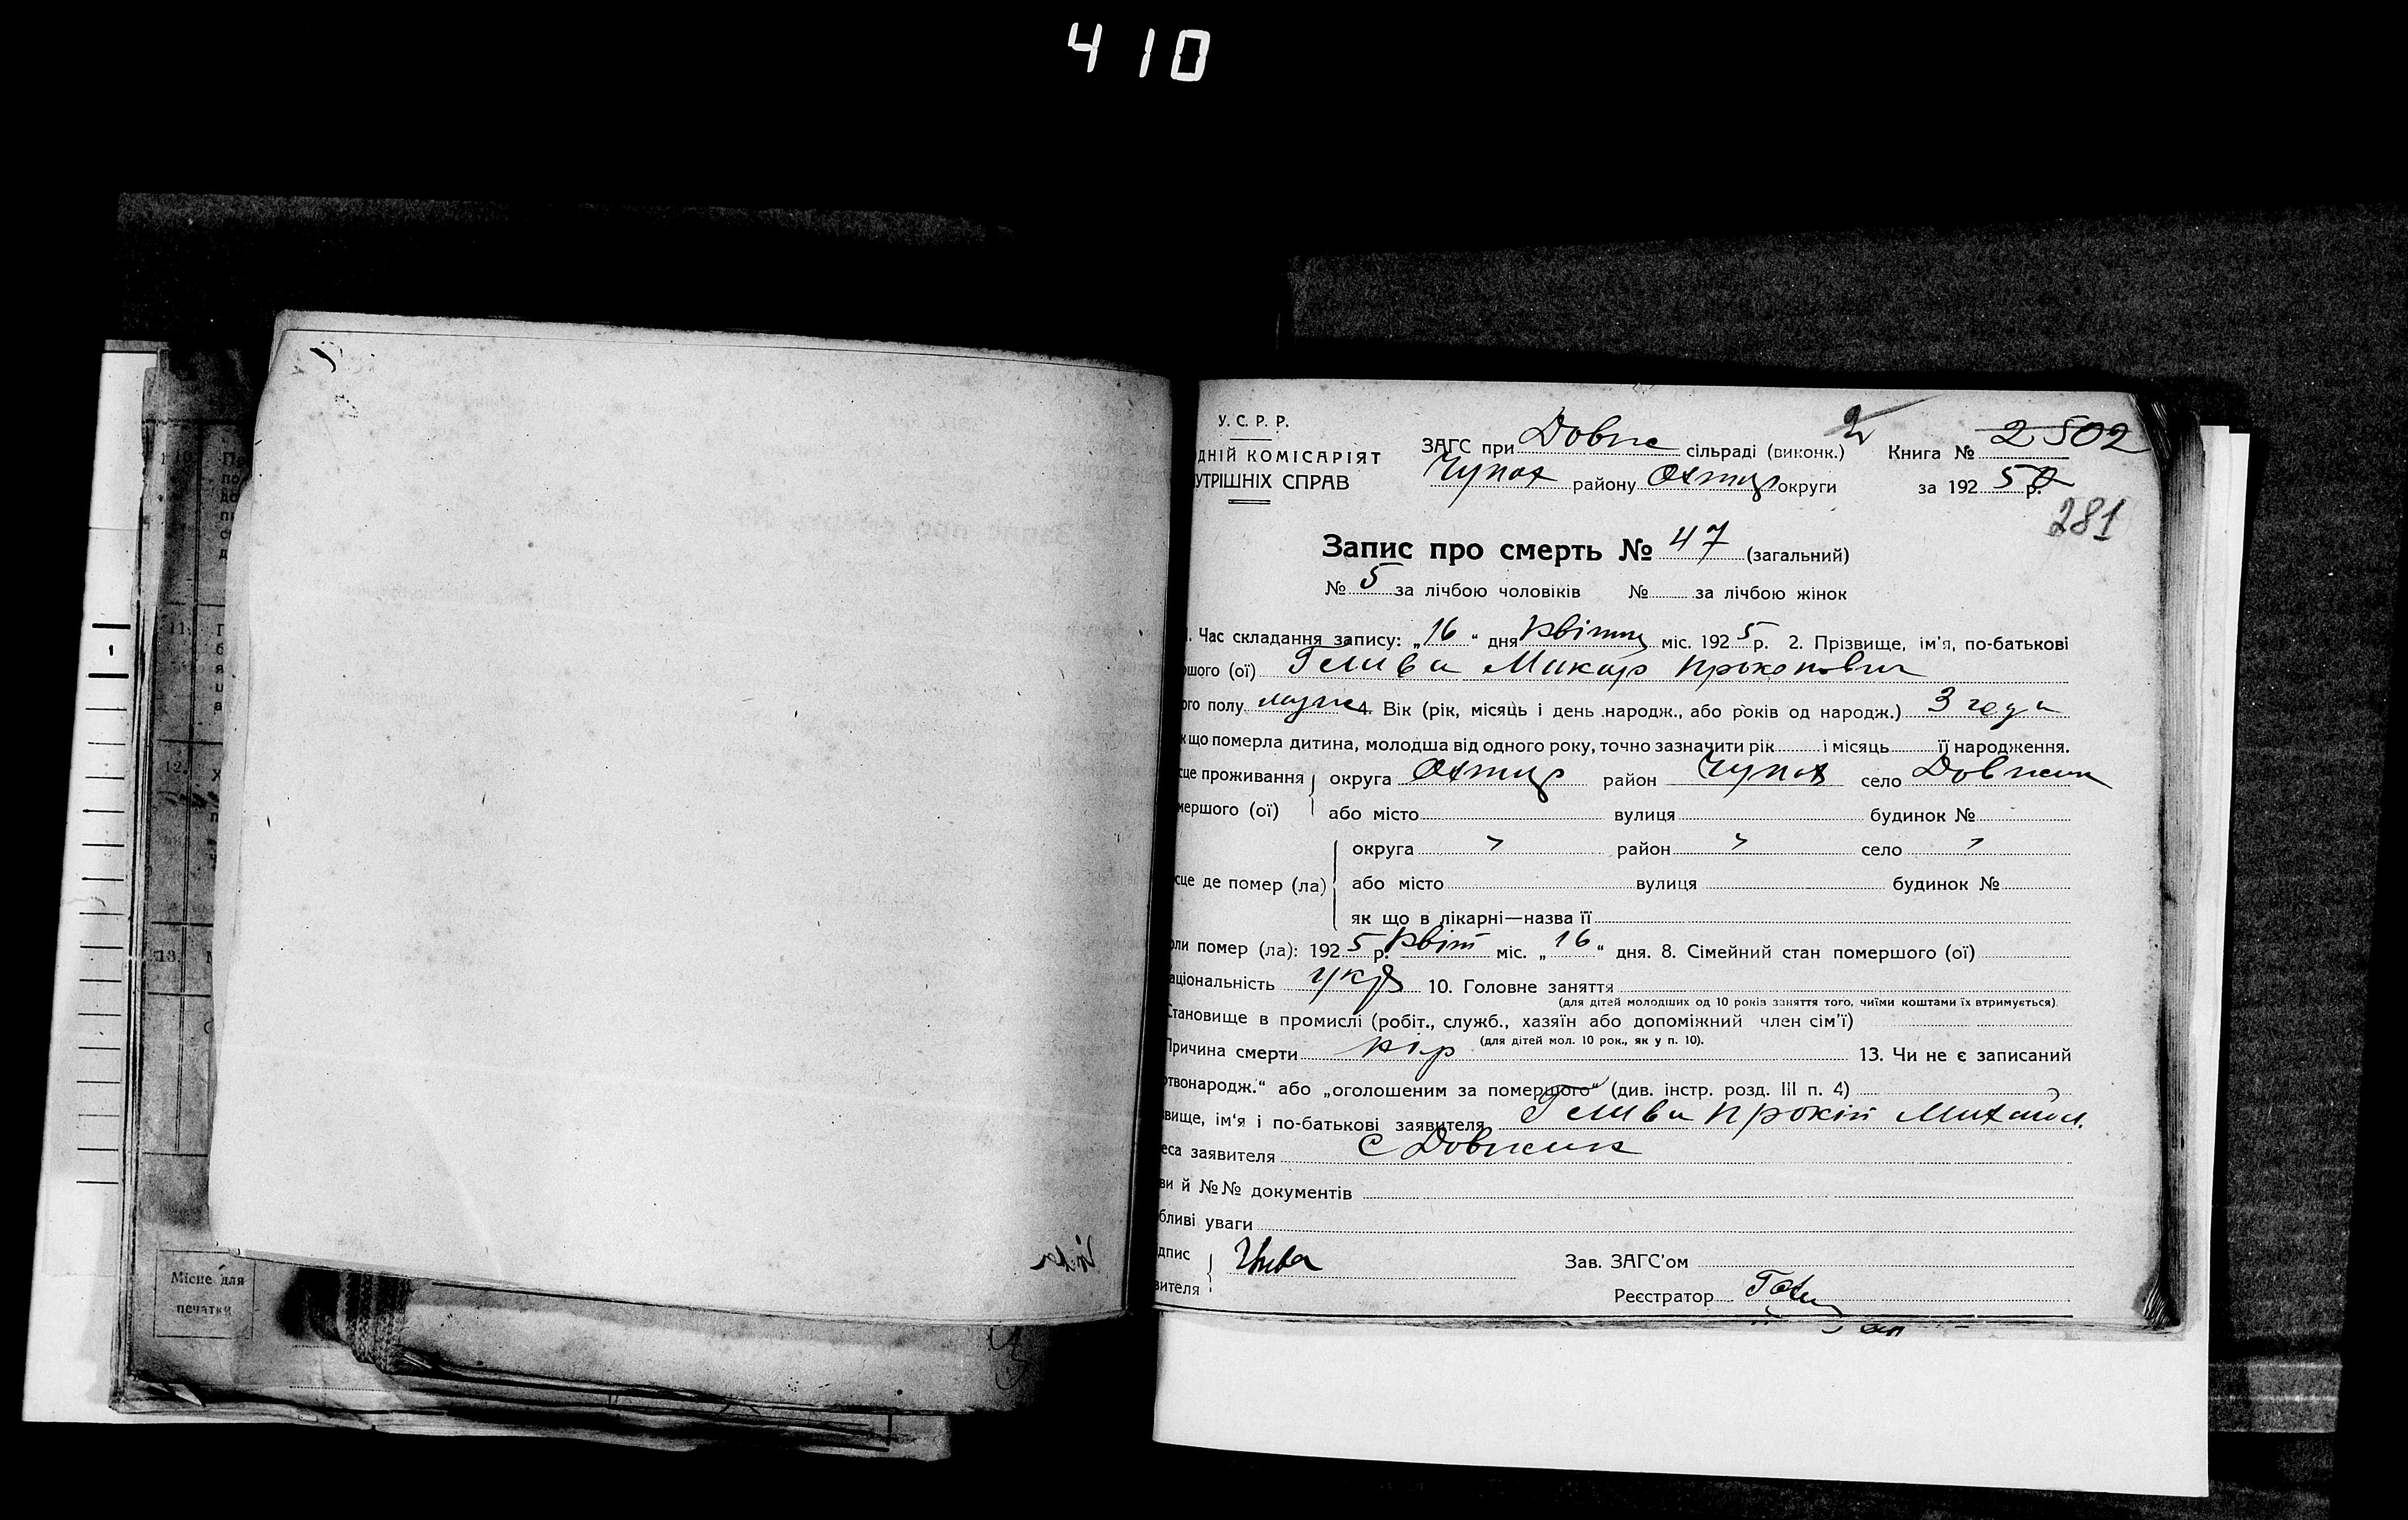 410
У. С. Р. Р.
ДНІЙ КОМІСАРІЯТ
УТРІШНІХ СПРАВ
ЗАГС при Довж сільраді (виконк.) 2 Книга № 2502
Чупах району Охтир округи за 192 5 р.
281
Запис про смерть № 47 (загальний)
№ 5 за лічбою чоловіків № за лічбою жінок
1. Час складання запису: „16“ дня Квітня міс. 192 5 р. 2. Прізвище, ім'я, по-батькові
ршого (ої) Гелива Макар Прокопович
ого полу мужс 4. Вік (рік, місяць і день народж., або років од народж.) 3 года
к що померла дитина, молодша від одного року, точно зазначити рік і місяць її народження.
сце проживання округа Охтир район Чупах село Должик
мершого (ої) або місто вулиця будинок №
округа " район " село "
сце де помер (ла) або місто вулиця будинок №
як що в лікарні—назва її
оли помер (ла): 192 5 р. Квіт міс. „16“ дня. 8. Сімейний стан помершого (ої)
аціональність укр 10. Головне заняття
(для дітей молодших од 10 років заняття того, чиїми коштами їх втримується).
Становище в промислі (робіт., служб., хазяїн або допоміжний член сім'ї)
(для дітей мол. 10 рок., як у п. 10).
Причина смерти кір 13. Чи не є записаний
ртвонародж.“ або „оголошеним за помершого“ (див. інстр. розд. III п. 4)
вище, ім'я і по-батькові заявителя Гелива Прокіп Михайл.
еса заявителя С Довжик
ви й №№ документів
бливі уваги
дпис Зав. ЗАГС'ом
вителя Реєстратор
10.
11.
12.
13.
Місце для
печатки